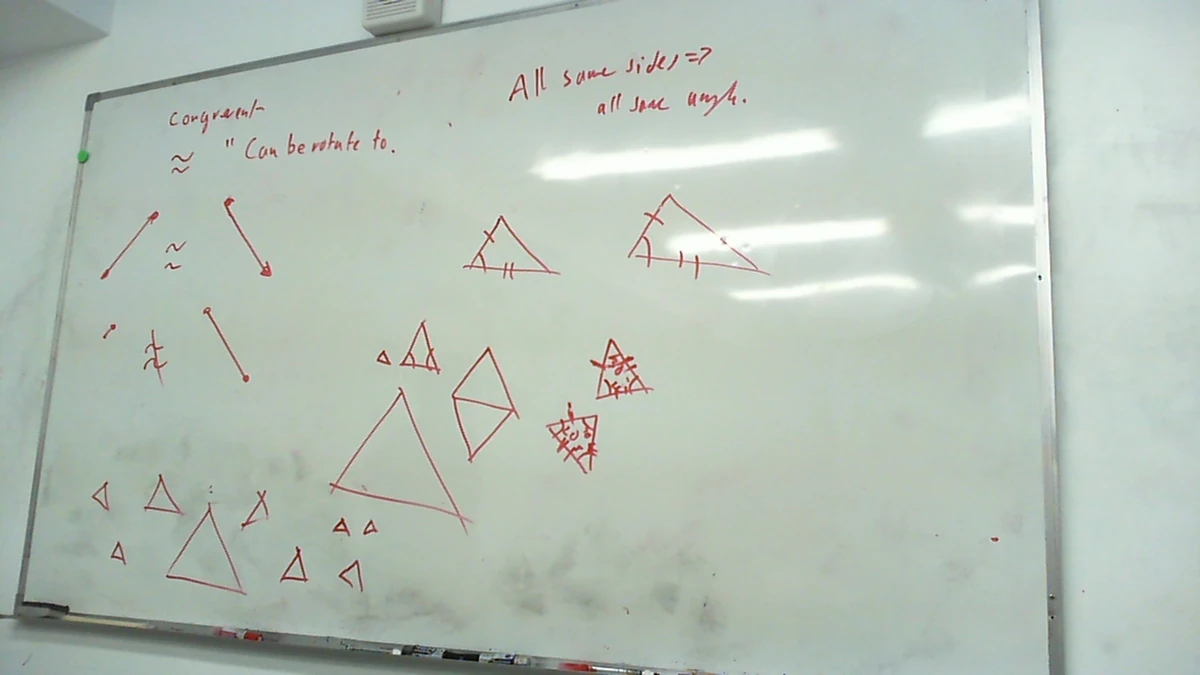 Congruent
≈ " Can be rotate to.
All same sides =>
all same angle.
≈
≉